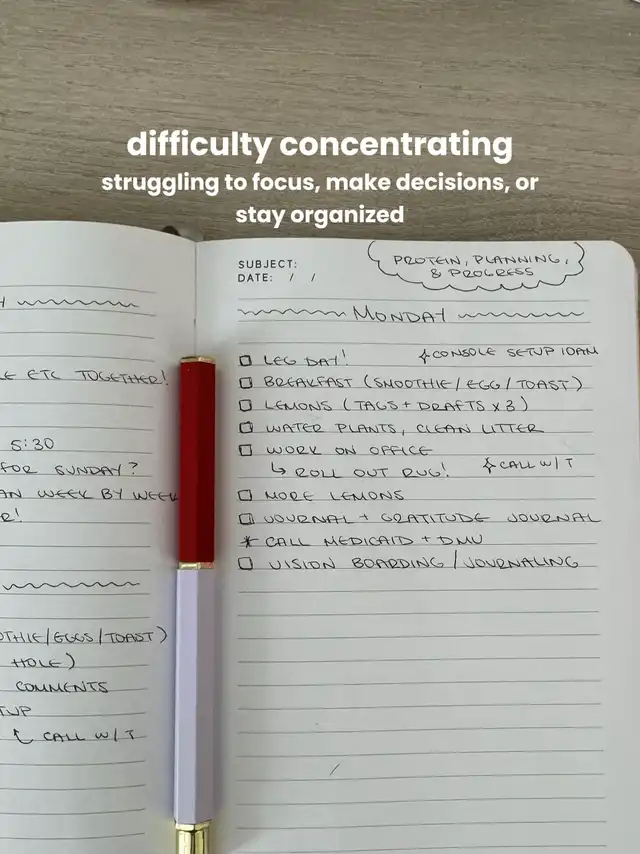 difficulty concentrating
struggling to focus, make decisions, or
stay organized
SUBJECT:
DATE: / /
PROTEIN, PLANNING,
& PROGRESS
MONDAY
LEG DAY!
CONSOLE SETUP 10AM
BREAKFAST (SMOOTHIE/EGG/TOAST)
LEMONS (TAGS + DRAFTS x 3)
WATER PLANTS, CLEAN LITTER
WORK ON OFFICE
↳ ROLL OUT RUG!
CALL W/T
MORE LEMONS
JOURNAL + GRATITUDE JOURNAL
* CALL MEDICAID + DMV
VISION BOARDING/JOURNALING
ETC TOGETHER!
5:30
FOR SUNDAY?
WEEK BY WEEK
/EGGS/TOAST)
HOLE)
COMMENTS
CALL W/T